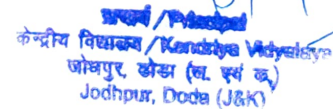 प्राचार्य/Principal
केन्द्रीय विद्यालय/Kendriya Vidyalaya
जोधपुर, डोडा (ज. एवं क.)
Jodhpur, Doda (J&K)